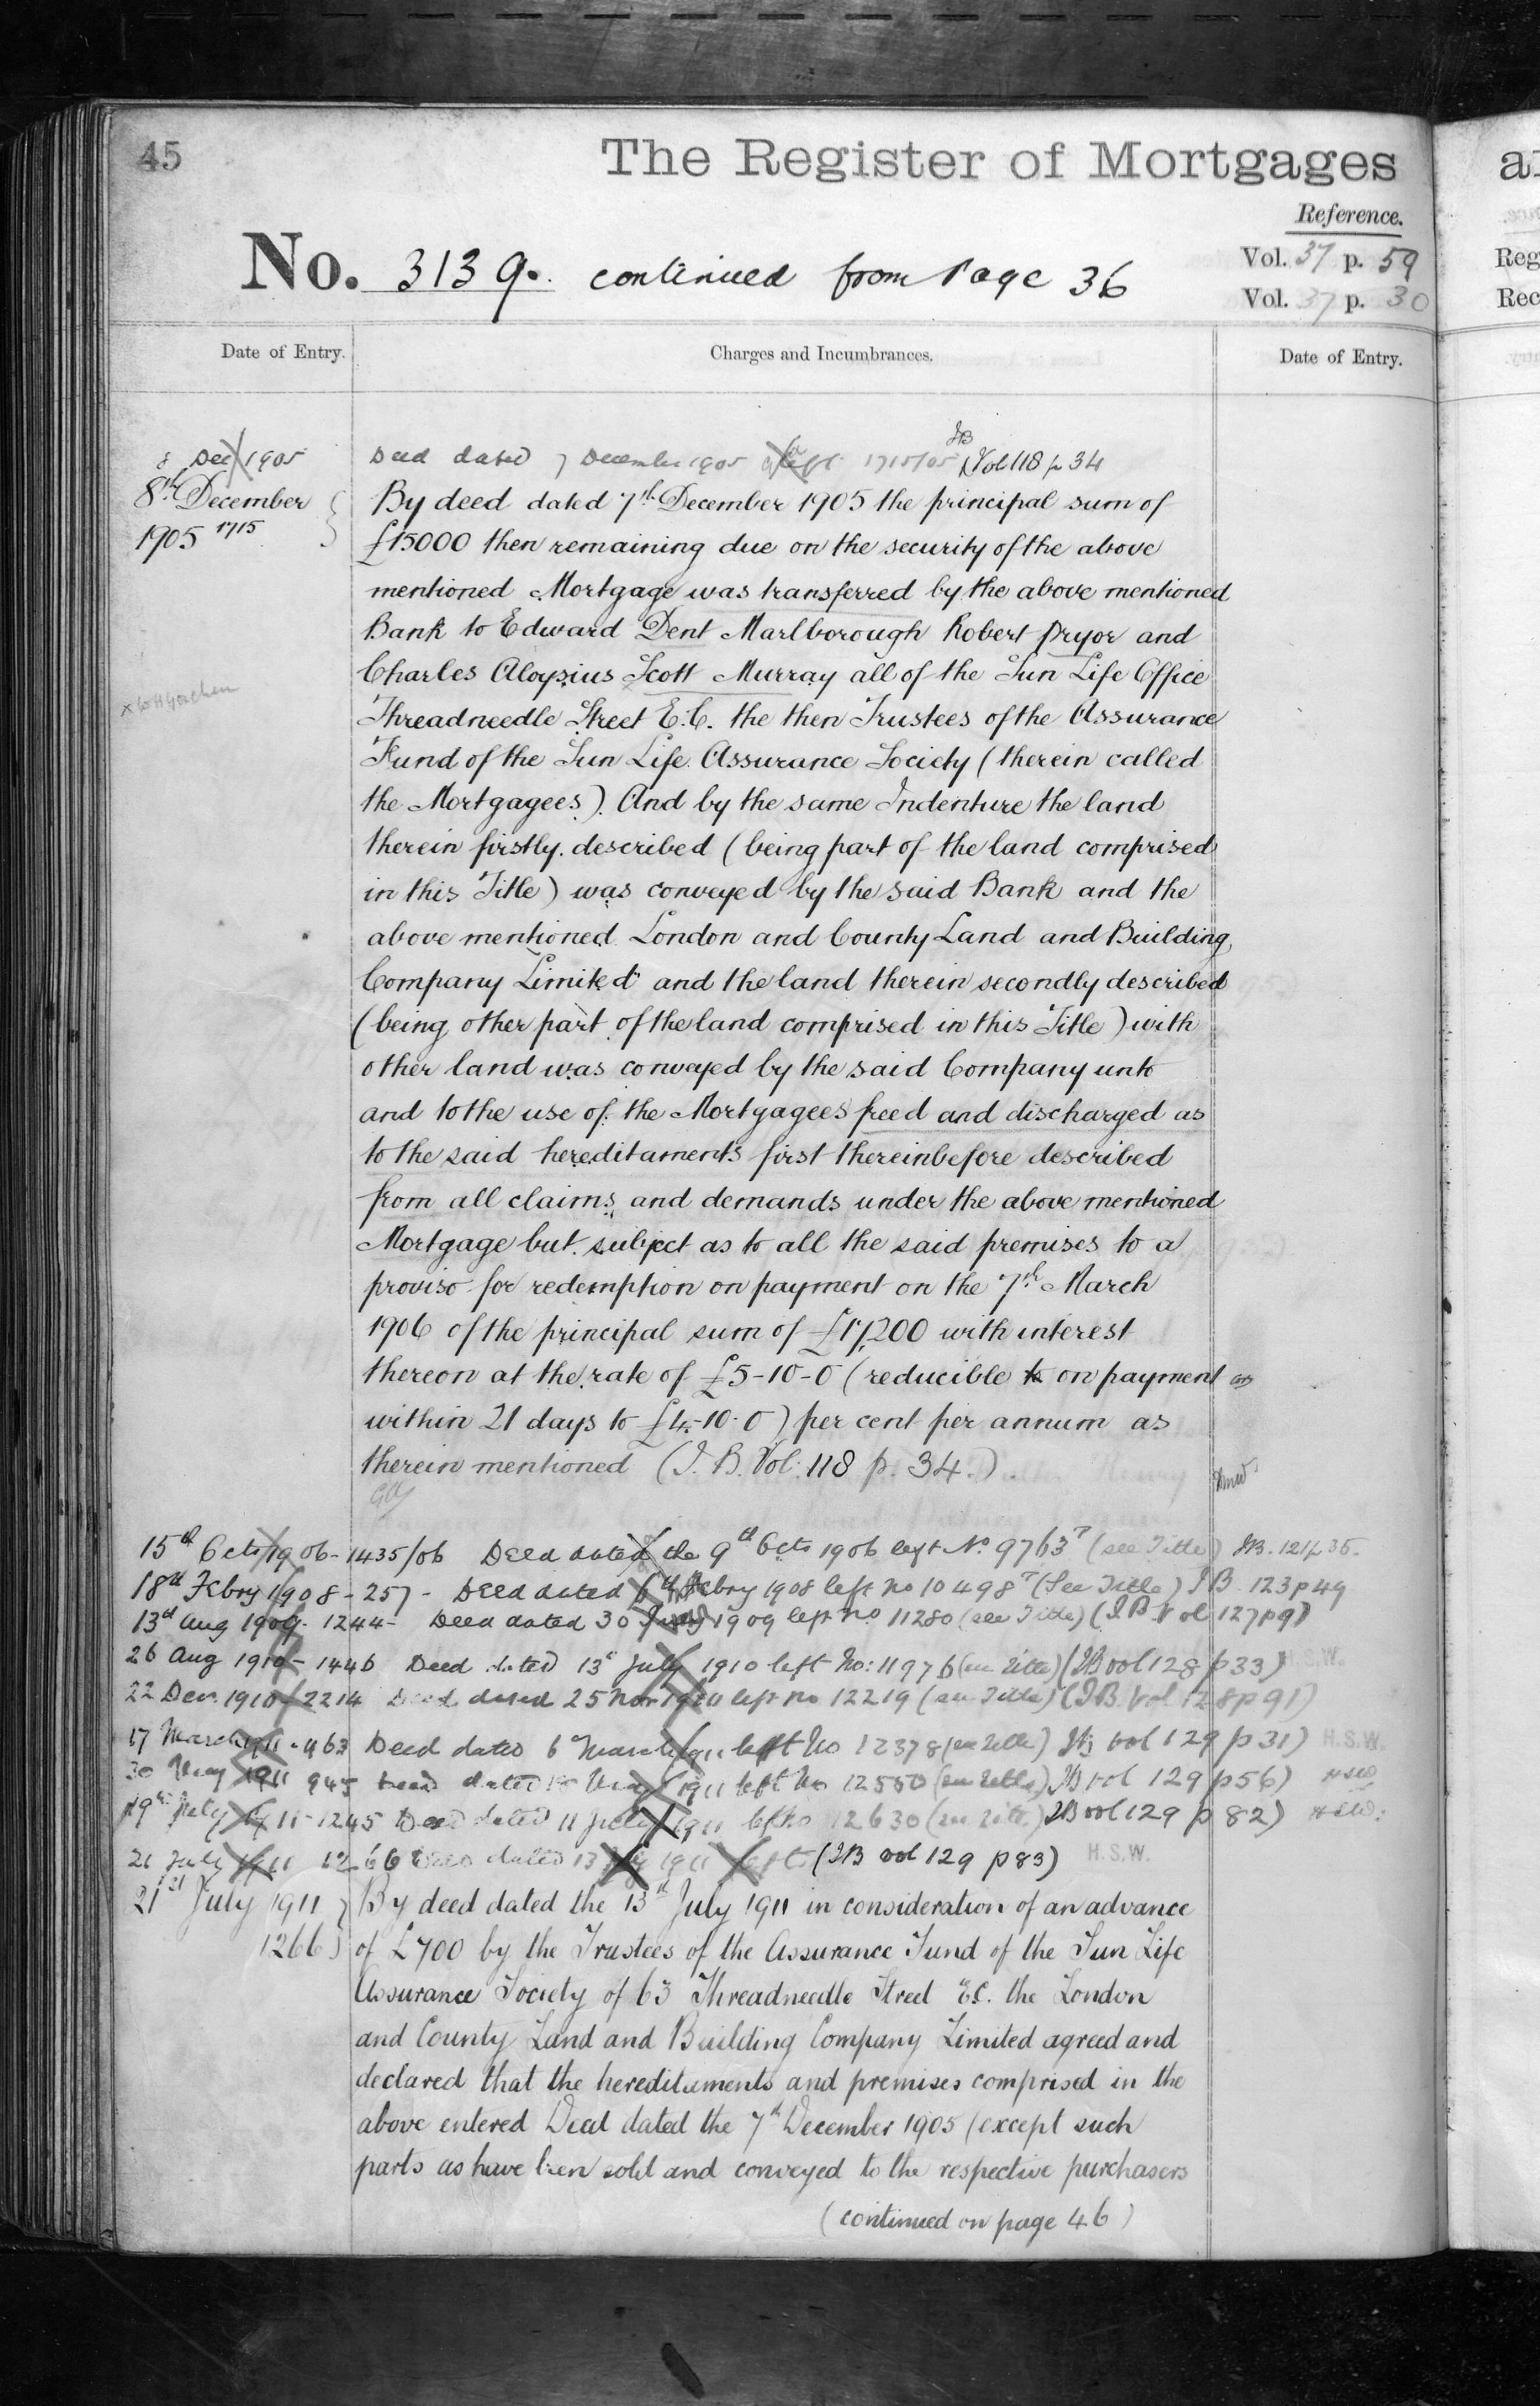 45
The Register of Mortgages
Reference.
No. 3139. continued from Page 36
Vol. 37 p. 59
Vol. 37 p. 30
Date of Entry.
Charges and Incumbrances.
Date of Entry.
8 Dec 1905 Deed dated 7 December 1905 left 1715/05 JB Vol 118 p 34
8th December By deed dated 7th December 1905 the principal sum of
1905 1715 £15000 then remaining due on the security of the above
mentioned Mortgage was transferred by the above mentioned
Bank to Edward Dent Marlborough Robert Pryor and
Charles Aloysius Scott Murray all of the Sun Life Office
Threadneedle Street E.C. the then Trustees of the Assurance
Fund of the Sun Life Assurance Society (therein called
the Mortgagees). And by the same Indenture the land
therein firstly described (being part of the land comprised
in this Title) was conveyed by the said Bank and the
above mentioned London and County Land and Building
Company Limited and the land therein secondly described
(being other part of the land comprised in this Title) with
other land was conveyed by the said Company unto
and to the use of the Mortgagees freed and discharged as
to the said hereditaments first thereinbefore described
from all claims and demands under the above mentioned
Mortgage but subject as to all the said premises to a
proviso for redemption on payment on the 7th March
1906 of the principal sum of £17,200 with interest
thereon at the rate of £5-10-0 (reducible to on payment
within 21 days to £4-10-0) per cent per annum as
therein mentioned (I.B. Vol: 118 p. 34.)
15th Octr 1906 - 1435/06 Deed dated the 9th Octr 1906 left No 9763T (see Title) IB. 121 p 35.
18th Febry 1908 - 257 - Deed dated 6th Febry 1908 left no 10498T (See Title) IB 123 p 49
13th Aug 1909 - 1244 - Deed dated 30 1909 left no 11280 (see Title) (IB Vol 127 p 9)
26 Aug 1910 - 1446 Deed dated 13th July 1910 left No: 11976 (see Title) (IB vol 128 p 33) H.S.W.
22 Decr. 1910 - 2214 Deed dated 25 Novr 1910 left no 12219 (see Title) (IB Vol 128 p 91)
17 March 1911 - 463 Deed dated 6 March 1911 left No 12378 (see Title) IB vol 129 p 31) H.S.W.
30 May 1911 945 Deed dated May 1911 left No 12550 (see Title) IB vol 129 p 56) HSW
19th July 1911 - 1245 Deed dated 11 July 1911 left no 12630 (see Title) IB vol 129 p 82) HSW.
21 July 1911 1266 Deed dated 13 July 1911 left (IB vol 129 p 83) H.S.W.
21st July 1911 By deed dated the 13th July 1911 in consideration of an advance
1266 of £700 by the Trustees of the Assurance Fund of the Sun Life
Assurance Society of 63 Threadneedle Street E.C. the London
and County Land and Building Company Limited agreed and
declared that the hereditaments and premises comprised in the
above entered Deed dated the 7th December 1905 (except such
parts as have been sold and conveyed to the respective purchasers
(continued on page 46)